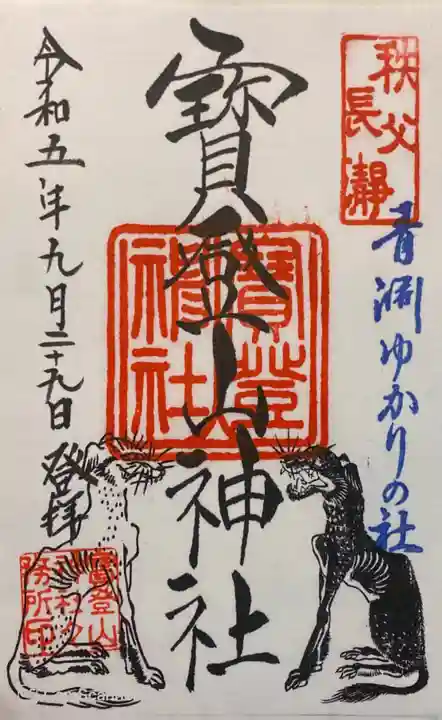 秩父
長瀞
青淵ゆかりの社
寳登山神社
寳登
神社
令和五年九月二十九日 登拝
寳登山
神社々
務所印